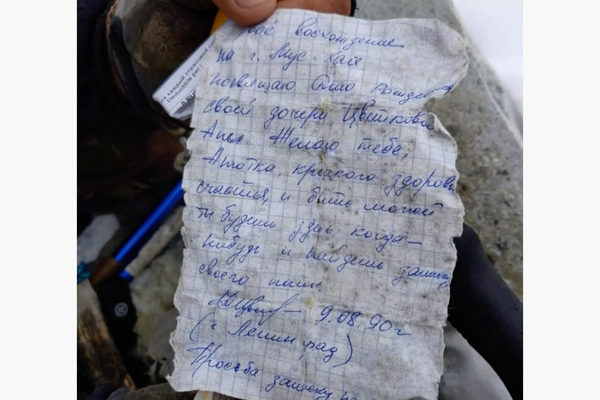 своё восхождение
на г. Мус Хая
посвящаю Дню рождения
своей дочери Цветковой
Анст. Желаю тебе,
Анютка, крепкого здоровья
счастья, и быть может
ты будешь здесь когда-
нибудь и найдёшь записку
своего папы.
9.08.90г
(г. Ленинград)
Просьба записку не